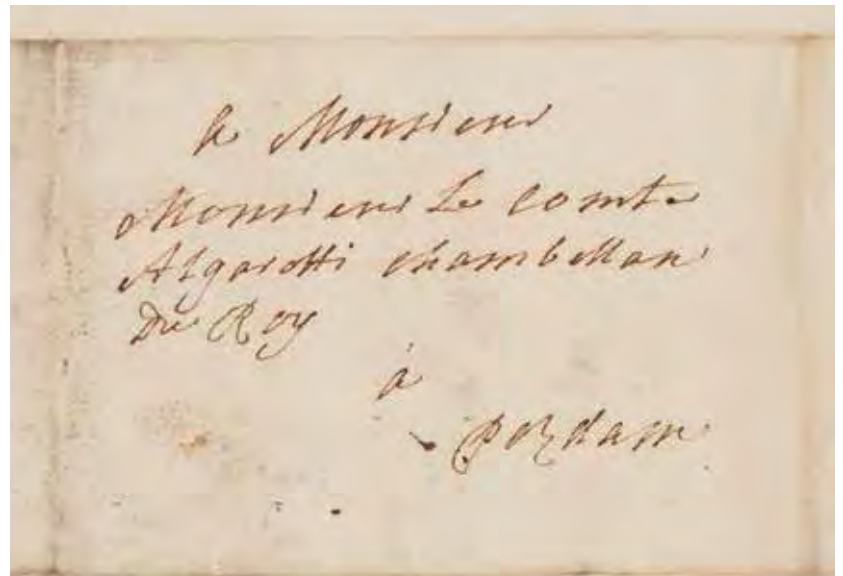 a Monsieur
Monsieur Le comte
Algarotti chambellan
Du Roy
à
pozdam